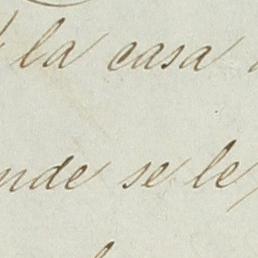 la casa
nde se le